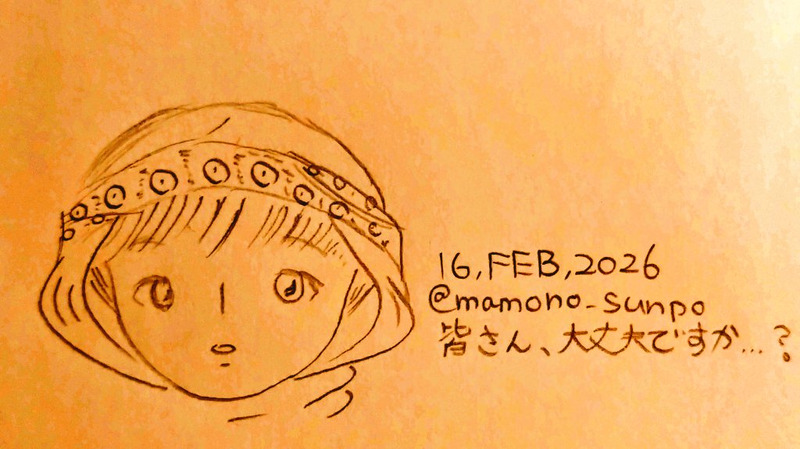 16,FEB,2026
@mamono_sunpo
皆さん、大丈夫ですか…?